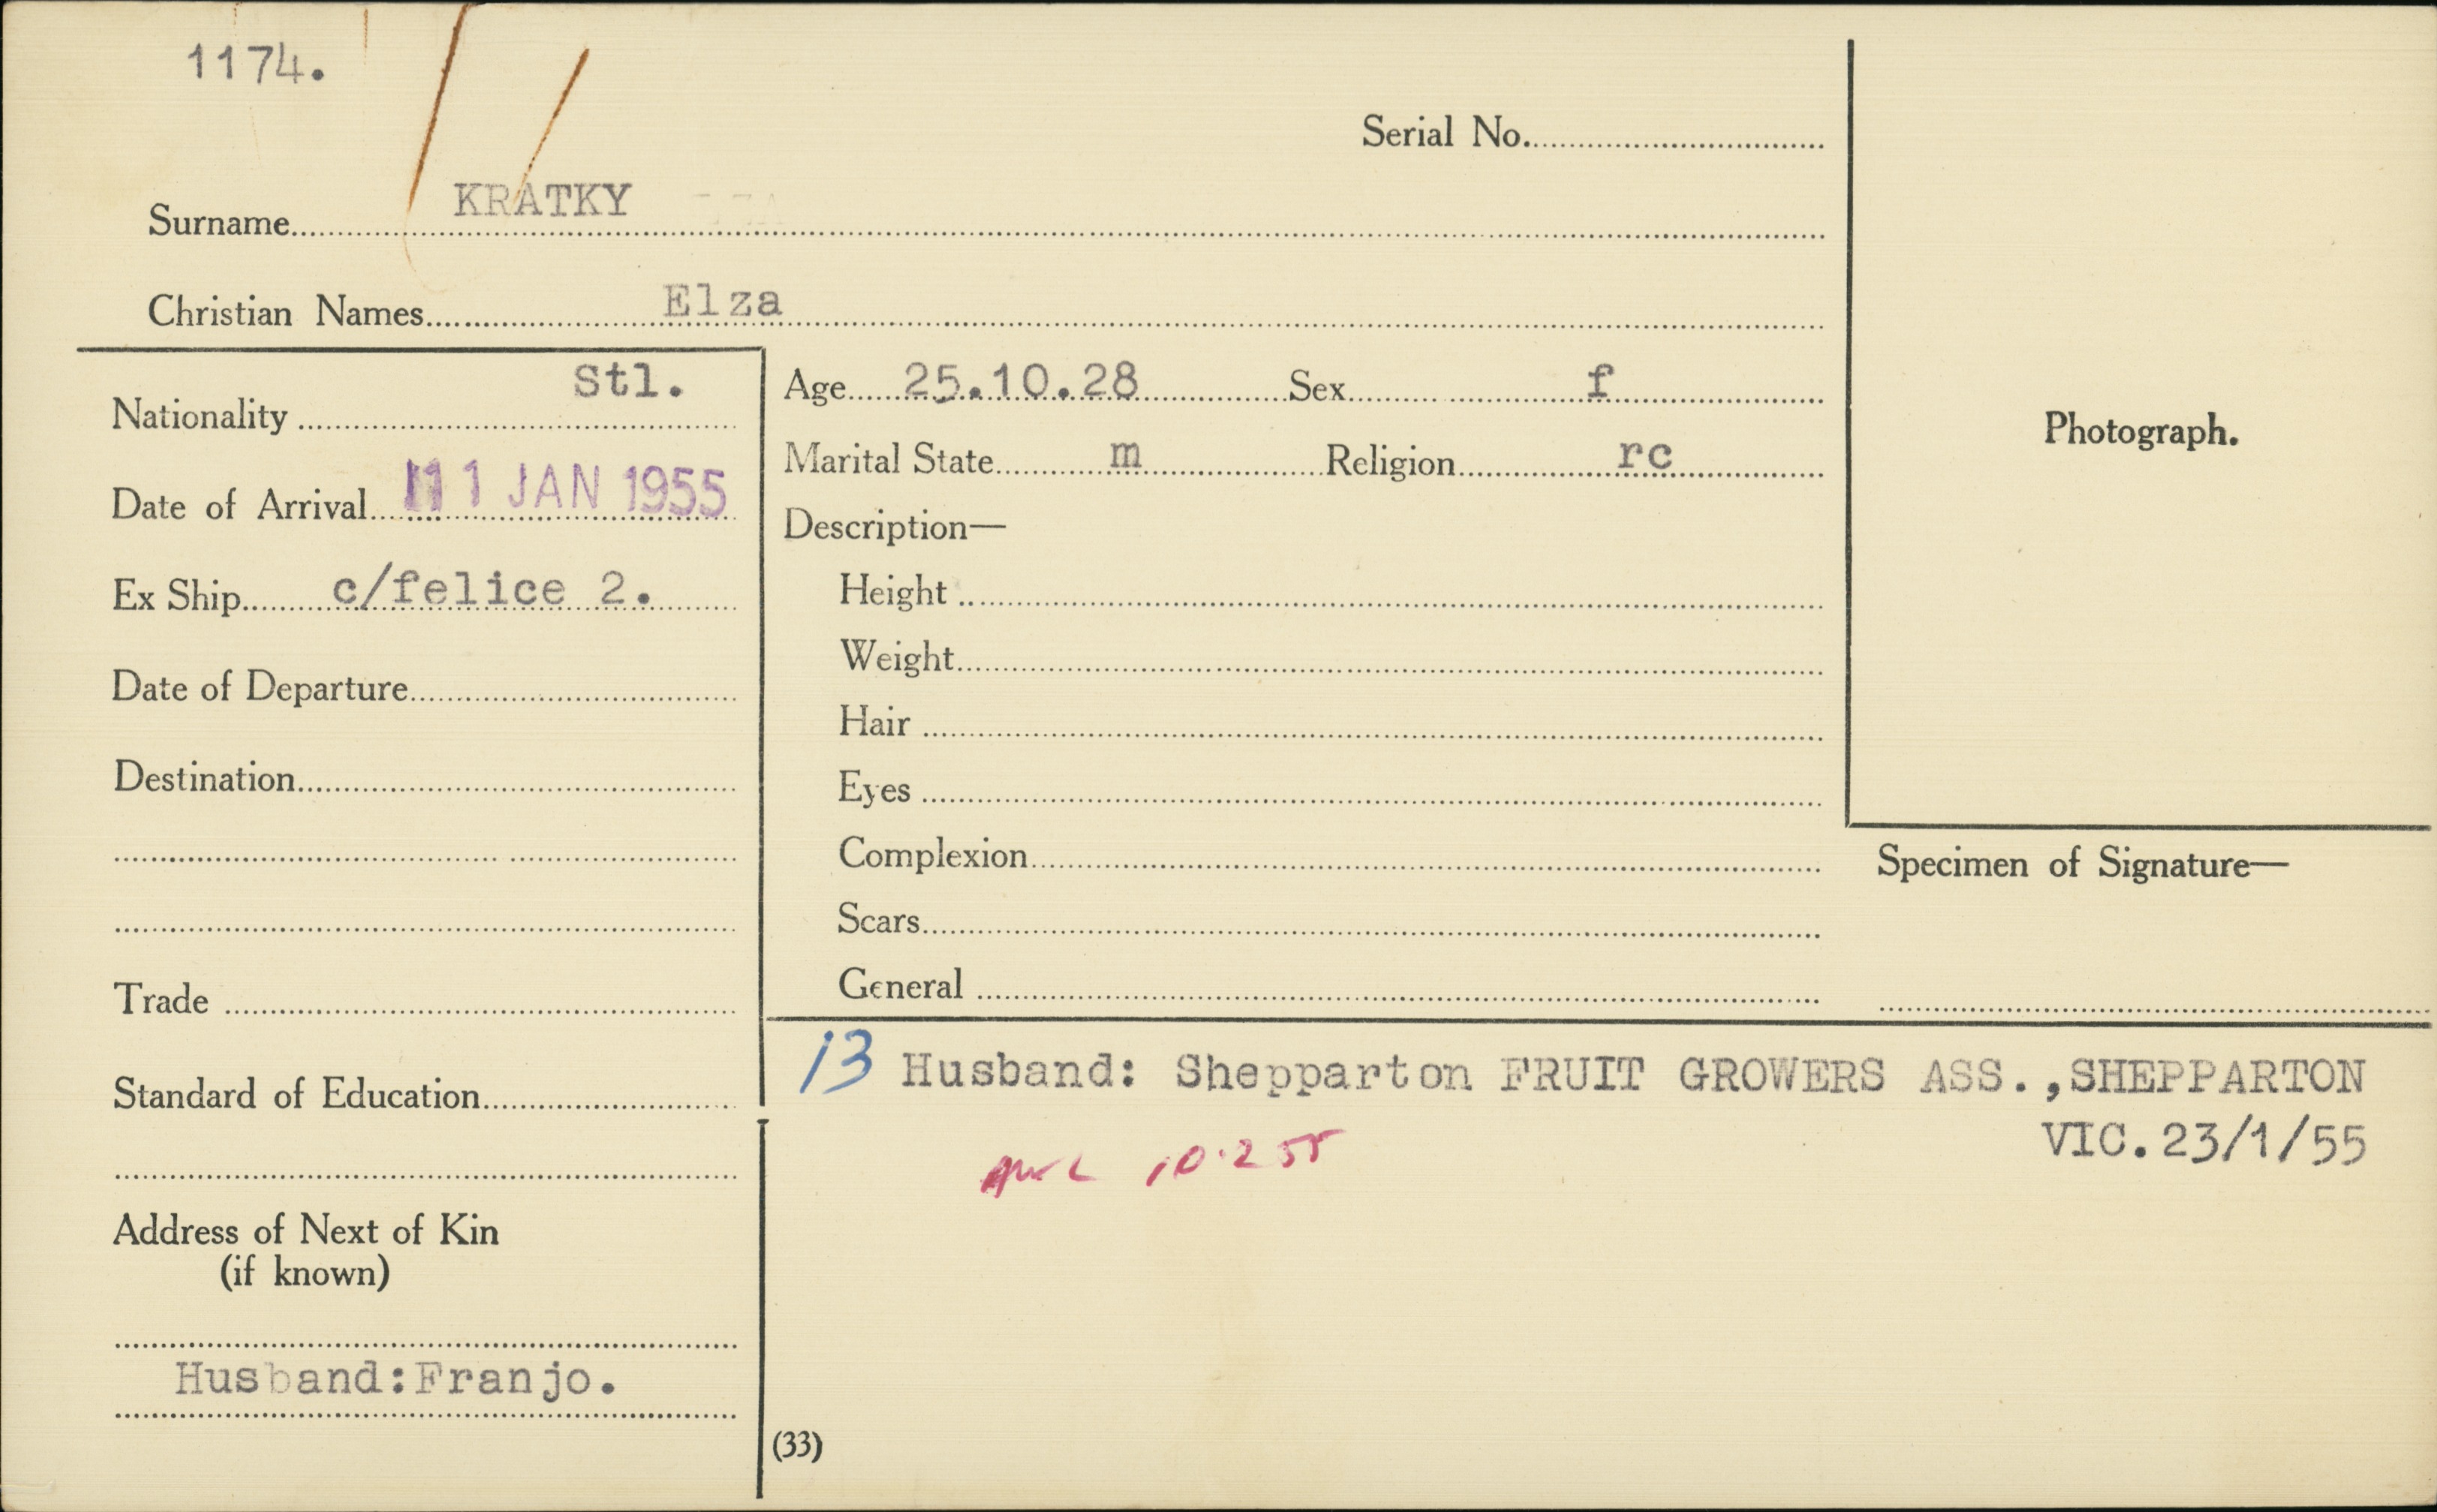 1174.
Serial No.
Surname KRATKY
Christian Names Elza
Nationality Stl.
Date of Arrival 11 JAN 1955
Ex Ship c/felice 2.
Date of Departure
Destination
Trade
Standard of Education
Address of Next of Kin
(if known)
Husband:Franjo.
Age 25.10.28 Sex f
Marital State m Religion rc
Description—
Height
Weight
Hair
Eyes
Complexion
Scars
General
Photograph.
Specimen of Signature—
13 Husband: Shepparton FRUIT GROWERS ASS.,SHEPPARTON
VIC.23/1/55
10.2 55
(33)